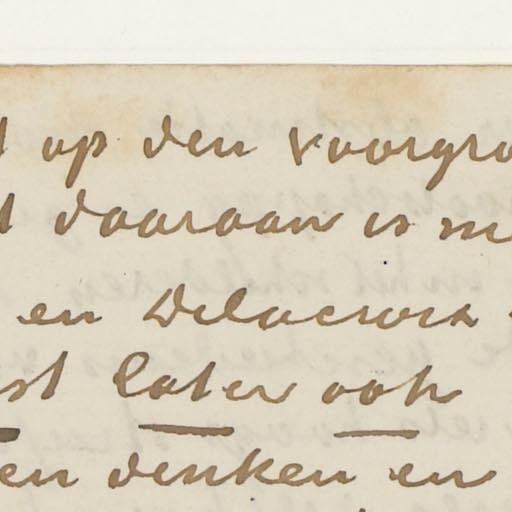 op den voorgro
daaraan is me
en Delacroix
st later ook
en denken en